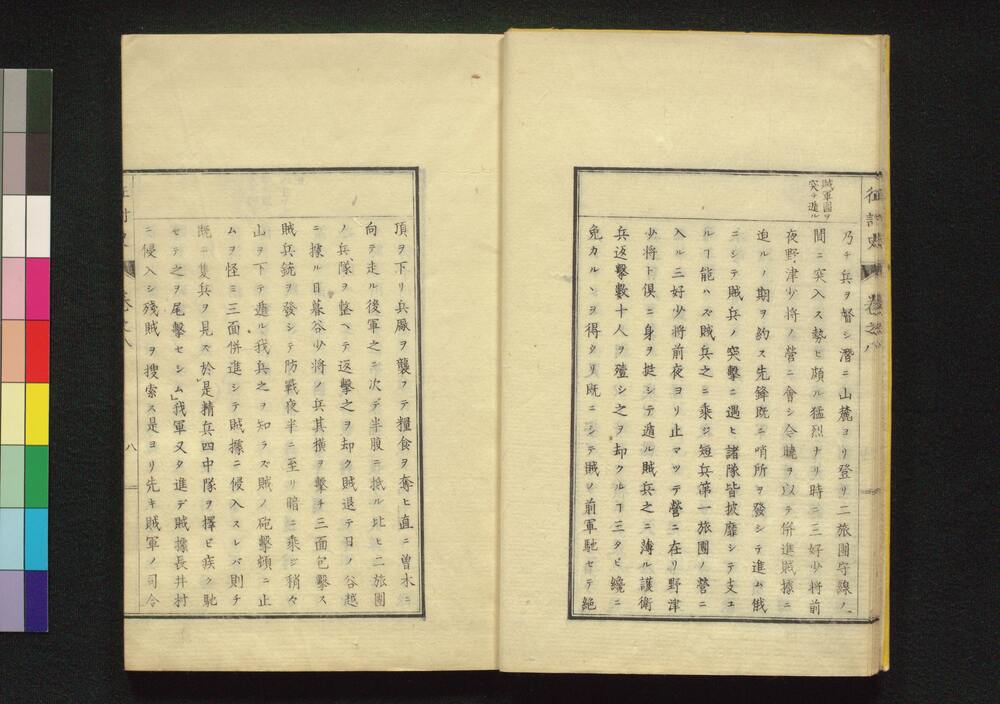 賊軍囲ヲ
突テ遁ル
乃チ兵ヲ督シ潜ニ山麓ヨリ登リ二旅團守線ノ
間ニ突入ス勢ヒ頗ル猛烈ナリ時ニ三好少将前
夜野津少将ノ營ニ會シ今曉ヲ以テ併進賊據ニ
迫ルノ期ヲ約ス先鋒既ニ哨所ヲ發シテ進ム俄
ニシテ賊兵ノ突擊ニ遇ヒ諸隊皆披靡シテ支ユ
ルヿ能ハズ賊兵之ニ乘ジ短兵第一旅團ノ營ニ
入ル三好少将前夜ヨリ止マツテ營ニ在リ野津
少将ト倶ニ身ヲ挺シテ遁ル賊兵之ニ薄ル護衛
兵返擊數十人ヲ殪シ之ヲ却クルヿ三タビ纔ニ
免カルヽヲ得タリ既ニシテ賊ノ前軍馳セテ絶
頂ヲ下リ兵厰ヲ襲フテ糧食ヲ奪ヒ直ニ曽木ニ
向テ走ル後軍之ニ次デ半腹ニ抵ル比ヒ二旅團
ノ兵隊ヲ整ヘテ返擊之ヲ却ク賊退テ日ノ谷越
ニ據ル日暮谷少将ノ兵其横ヲ擊チ三面包擊ス
賊兵銃ヲ發シテ防戰夜半ニ至リ暗ニ乘ジ稍々
山ヲ下テ遁ル我兵之ヲ知ラズ賊ノ砲擊頓ニ止
ムヲ怪ミ三面併進シテ賊據ニ侵入スレバ則チ
既ニ隻兵ヲ見ズ於是精兵四中隊ヲ擇ビ疾ク馳
セテ之ヲ尾擊セシム」我軍又タ進デ賊據長井村
ニ侵入シ殘賊ヲ搜索ス是ヨリ先キ賊軍ノ司令
八